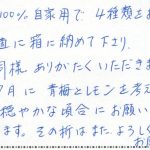 100% 自家用で 4種類を
直に箱に納めて下さり、
同様 ありがたくいただきま
月に 青梅とレモンを考え
穏やかな頃合にお願い
ます。その折はまた、よろしく
お